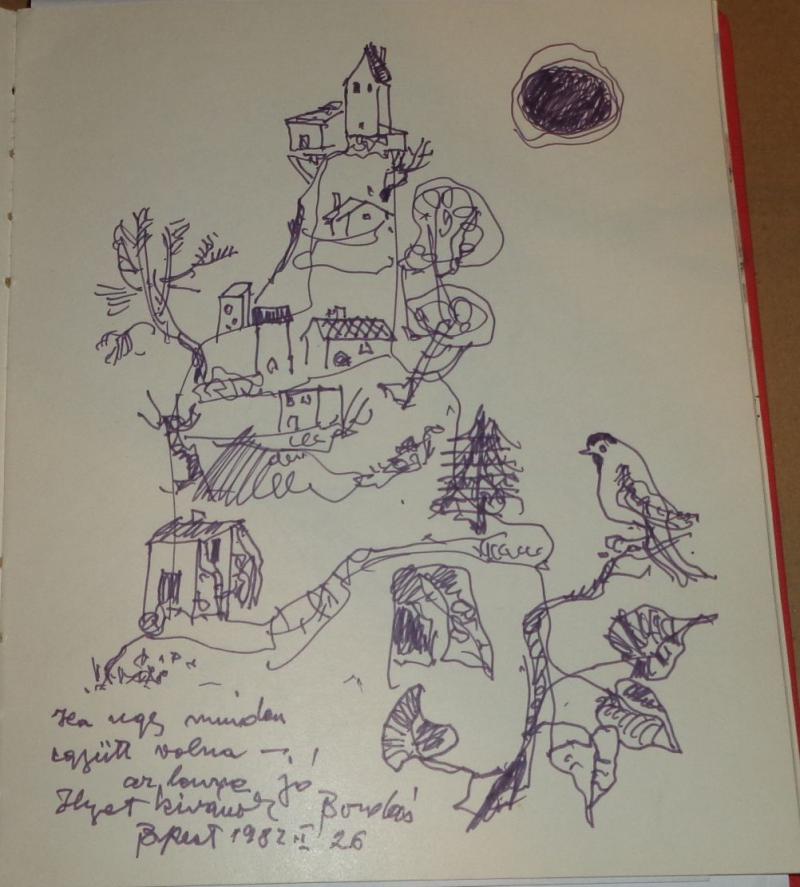 Ha minden
együtt volna — !
az lenne jó
Ilyet kívánok Bordás
BPest 1982 II 26